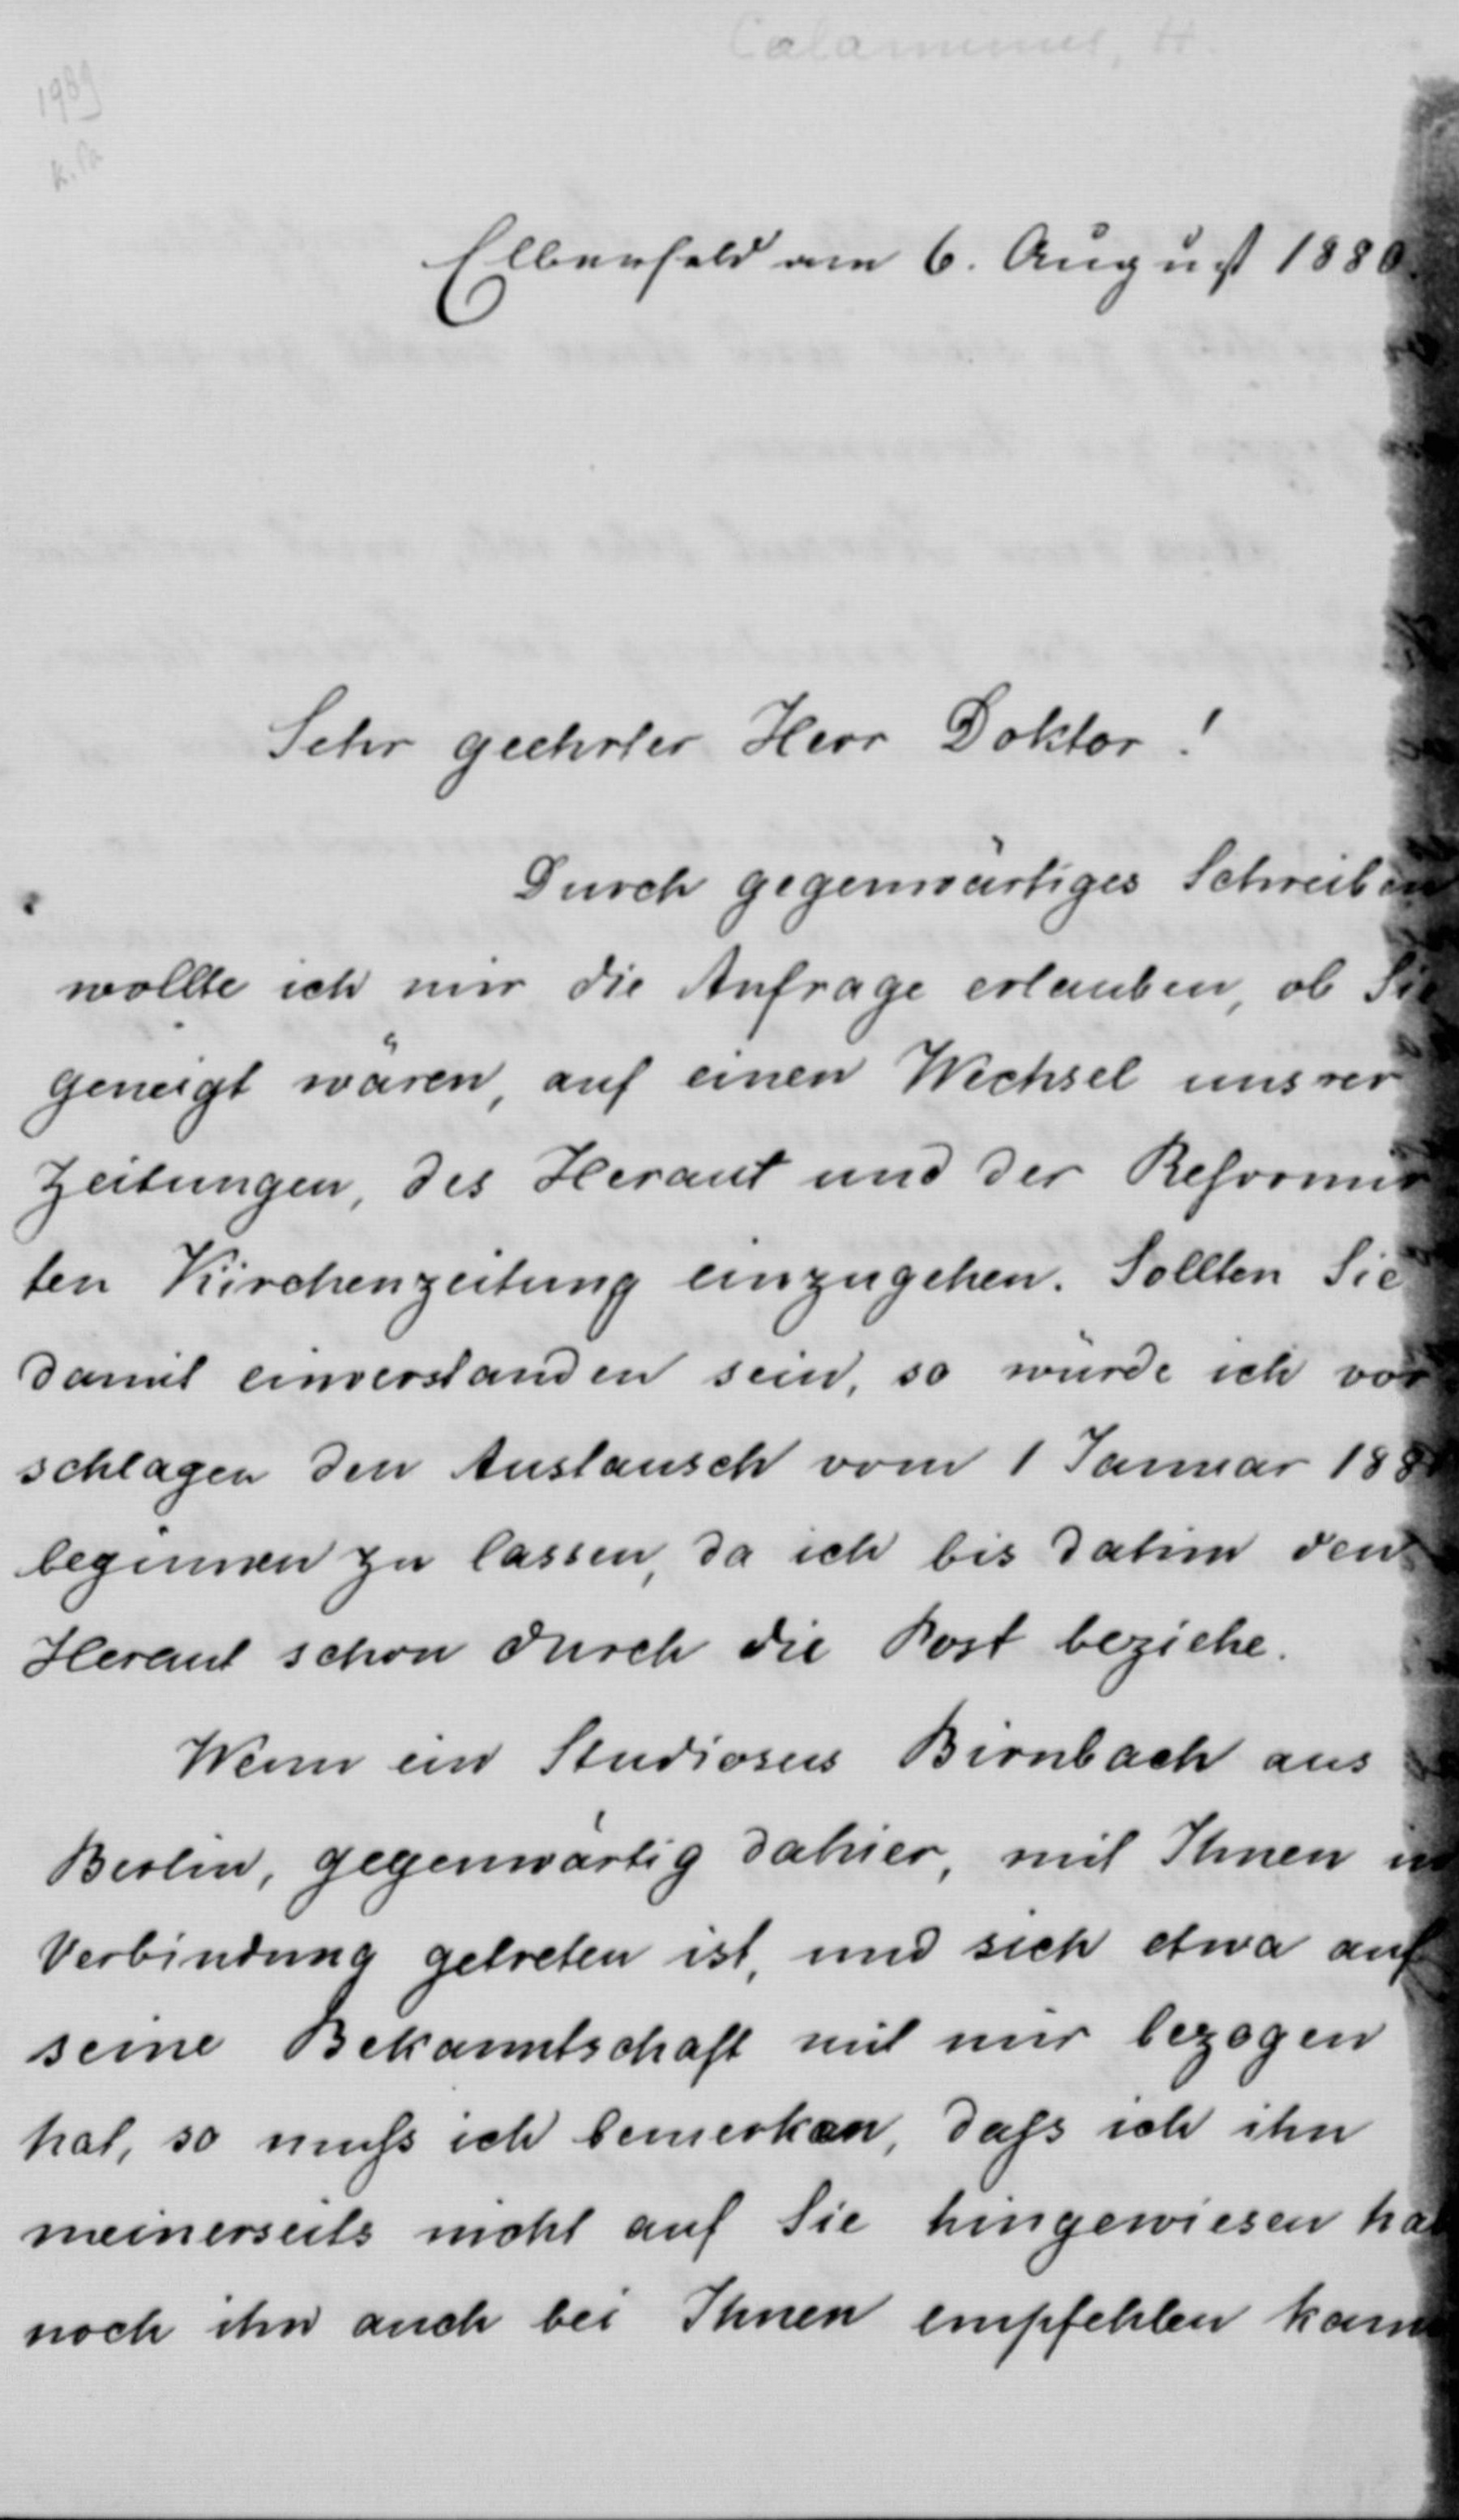 Calaminus, H.
1989
Elberfeld am 6. August 1880.
Sehr geehrter Herr Doktor!
Durch gegenwärtiges Schreiben
wollte ich mir die Anfrage erlauben, ob Sie
geneigt wären, auf einen Wechsel unsrer
Zeitungen, des Heraut und der Reformir
ten Kirchenzeitung einzugehen. Sollten Sie
damit einverstanden sein, so würde ich vor
schlagen den Austausch vom 1 Januar 188
beginnen zu lassen, da ich bis dahin den
Heraut schon durch die Post beziehe.
Wenn ein Studiosus Birnbach aus
Berlin, gegenwärtig dahier, mit Ihnen in
Verbindung getreten ist, und sich etwa auf
seine Bekanntschaft mit mir bezogen
hat, so muſs ich bemerken, daſs ich ihn
meinerseits nicht auf Sie hingewiesen hab
noch ihn auch bei Ihnen empfehlen kann